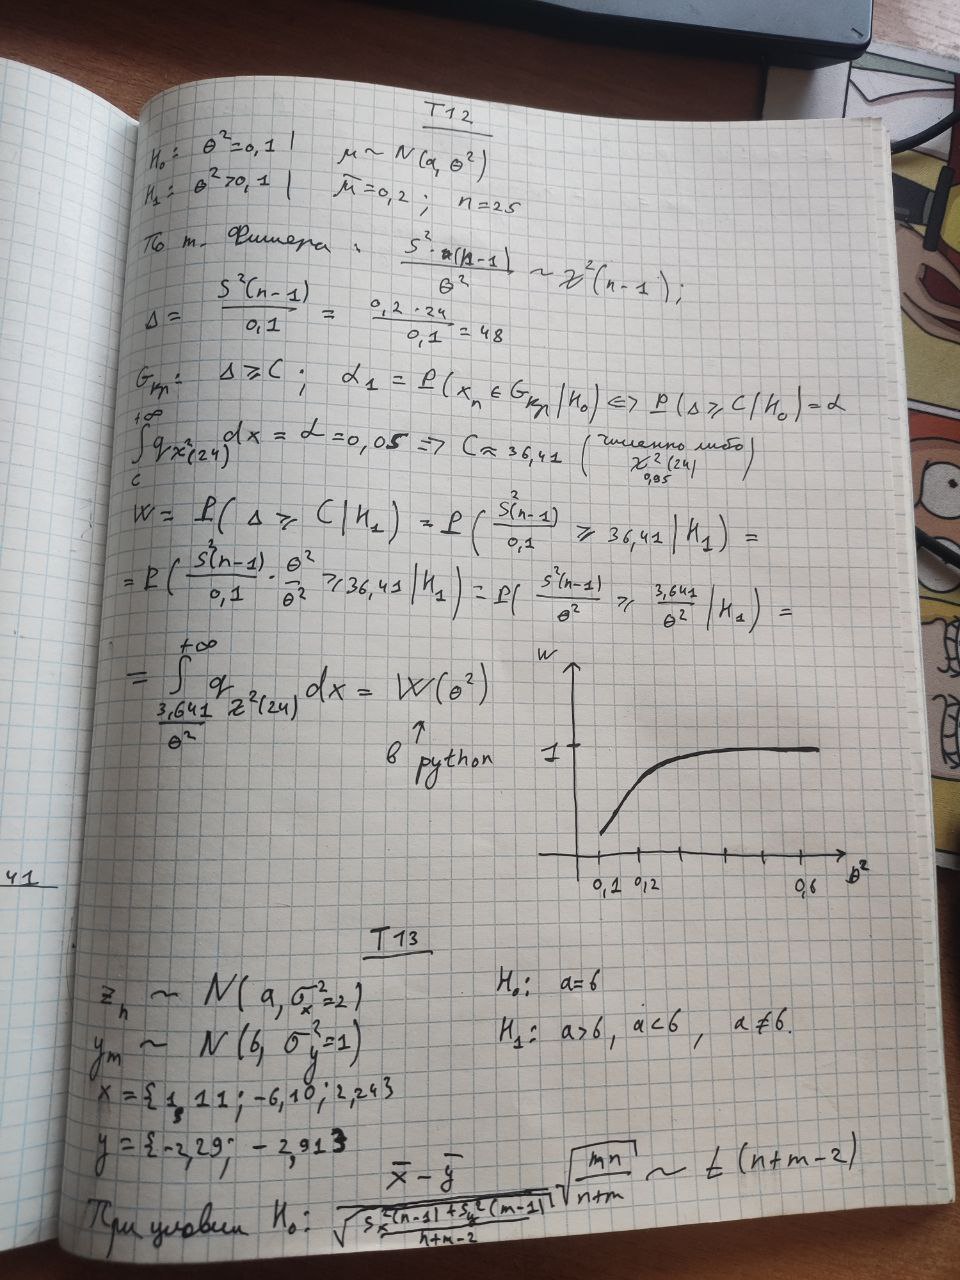 T12
H₀: θ²=0,1 | μ ~ N(a, θ²)
H₁: θ²>0,1 | μ̄=0,2 ; n=25
По т. Фишера: S²·(n-1)/θ² ~ χ²(n-1);
Δ = S²(n-1)/0,1 = 0,2·24/0,1 = 48
Gкр: Δ ⩾ C ; α₁ = P(xₙ ∈ Gкр | H₀) <=> P(Δ ⩾ C | H₀) = α
∫_C^{+∞} q_{χ²(24)} dx = α = 0,05 => C ≈ 36,41 (численно либо χ²_{0,95}(24))
W = P(Δ ⩾ C | H₁) = P(S²(n-1)/0,1 ⩾ 36,41 | H₁) =
= P(S²(n-1)/0,1 · θ²/θ² ⩾ 36,41 | H₁) = P(S²(n-1)/θ² ⩾ 3,641/θ² | H₁) =
= ∫_{3,641/θ²}^{+∞} q_{χ²(24)} dx = W(θ²)
↑
в python
W
1
0,1 0,2 0,6 θ²
41
T13
zₙ ~ N(a, σₓ²=2) H₀: a=б
yₘ ~ N(б, σ_y²=1) H₁: a>б, a<б, a≠б.
x = {1,11; -6,10; 2,24}
y = {-2,29; -2,91}
При условии H₀: (x̄ - ȳ)/√((Sₓ²(n-1)+S_y²(m-1))/(n+m-2)) √(mn/(n+m)) ~ t(n+m-2)